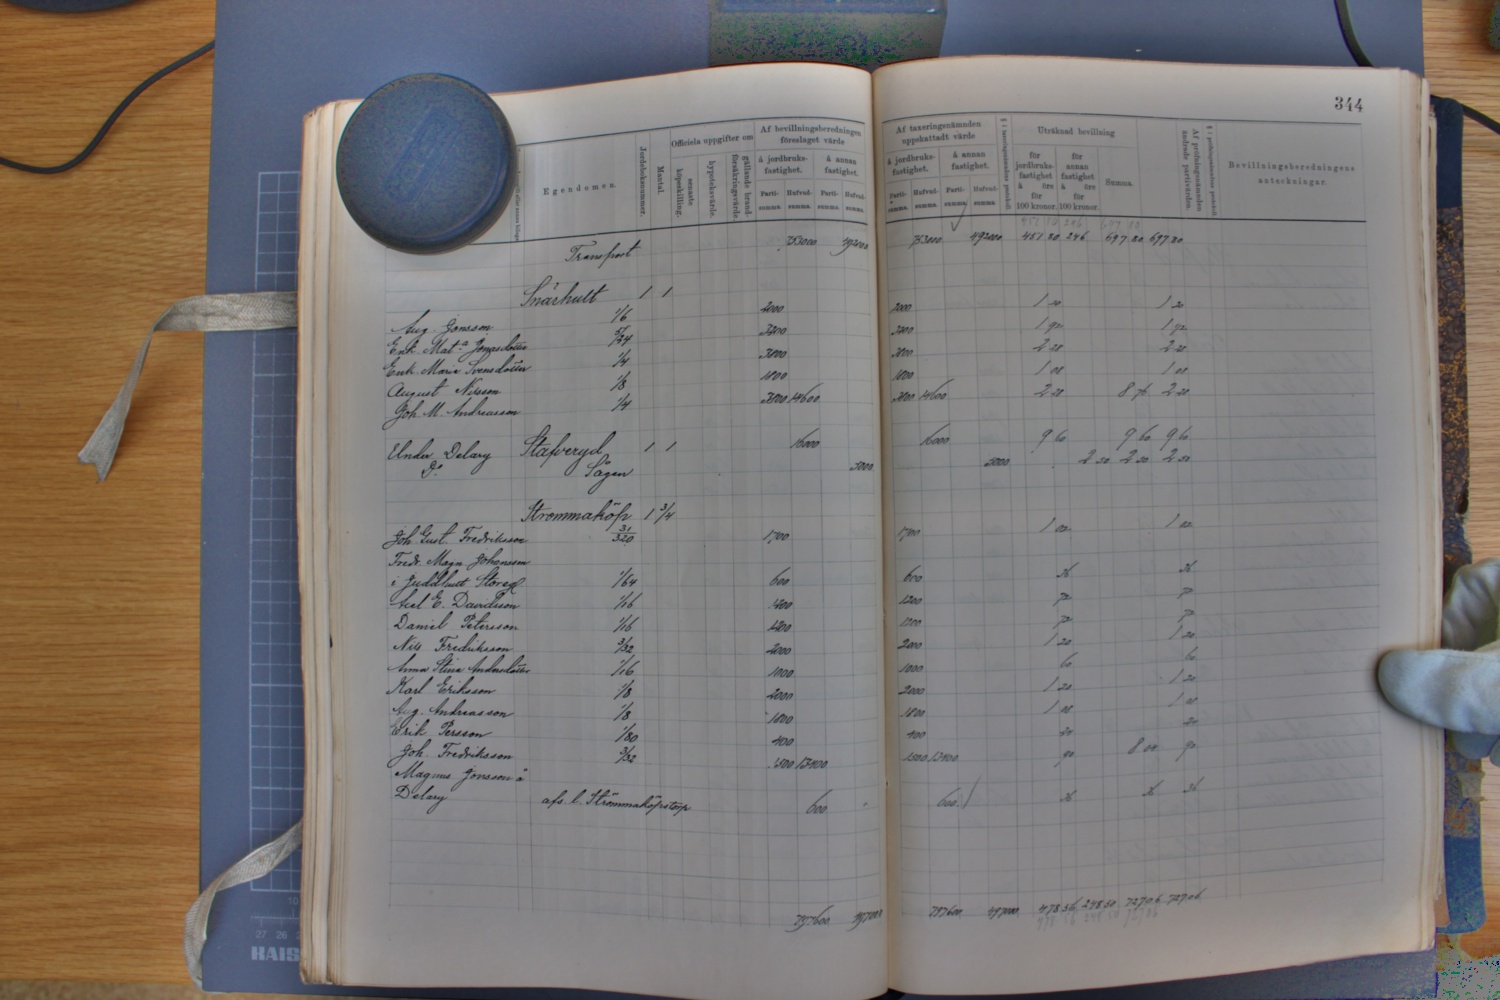 344
Egendomen.
Jordeboksnummer.
Mantal.
Officiela uppgifter om
senaste köpeskilling.
hypoteksvärde.
gällande brandförsäkringsvärde.
Af bevillningsberedningen föreslaget värde
å jordbruksfastighet.
å annan fastighet.
Partisumma.
Hufvudsumma.
Partisumma.
Hufvudsumma.
Af taxeringsnämnden uppskattadt värde
å jordbruksfastighet.
å annan fastighet.
Partisumma.
Hufvudsumma.
Partisumma.
Hufvudsumma.
Uträknad bevillning
för jordbruksfastighet å öre för 100 kronor.
för annan fastighet å öre för 100 kronor.
Summa.
Af pröfningsnämnden ändrade partivärden.
Bevillningsberedningens anteckningar.
Transport 753000 492000 753000 492000 451 80 246 697 80 697 80
Snärhult 1 1
Aug. Jonsson 1/6 2000 2000 1 20 1 20
Enk. Mat:a Jonasdotter 5/24 3200 3200 1 92 1 92
Enk. Maria Svensdotter 1/4 3800 3800 2 28 2 28
August Nilsson 1/8 1800 1800 1 08 1 08
Joh. M. Andreasson 1/4 3800 14600 3800 14600 2 28 8 76 2 28
Elnder Delary Stafveryd 1 1 16000 16000 9 60 9 60 9 60
D:o Sågen 5000 5000 2 50 2 50 2 50
Strömmaköp 1 3/4
Joh. Gust. Fredriksson 31/320 1700 1700 1 02 1 02
Fredr. Magn. Johansson
i Juddhult Storeg. 1/64 600 600 36 36
Axel E. Davidsson 1/16 1200 1200 72 72
Daniel Petersson 1/16 1200 1200 72 72
Nils Fredriksson 3/32 2000 2000 1 20 1 20
Anna Stina Andersdotter 1/16 1000 1000 60 60
Karl Eriksson 1/8 2000 2000 1 20 1 20
Aug. Andreasson 1/8 1800 1800 1 08 1 08
Erik Persson 1/80 400 400 24
Joh. Fredriksson 3/32 1500 13400 1500 13400 90 8 04 90
Magnus Jonsson å
Delary afs. l. Strömmaköpstorp 600 600 36 36 36
797600 497000 797600 497000 478 56 248 50 727 06 727 06
27 26